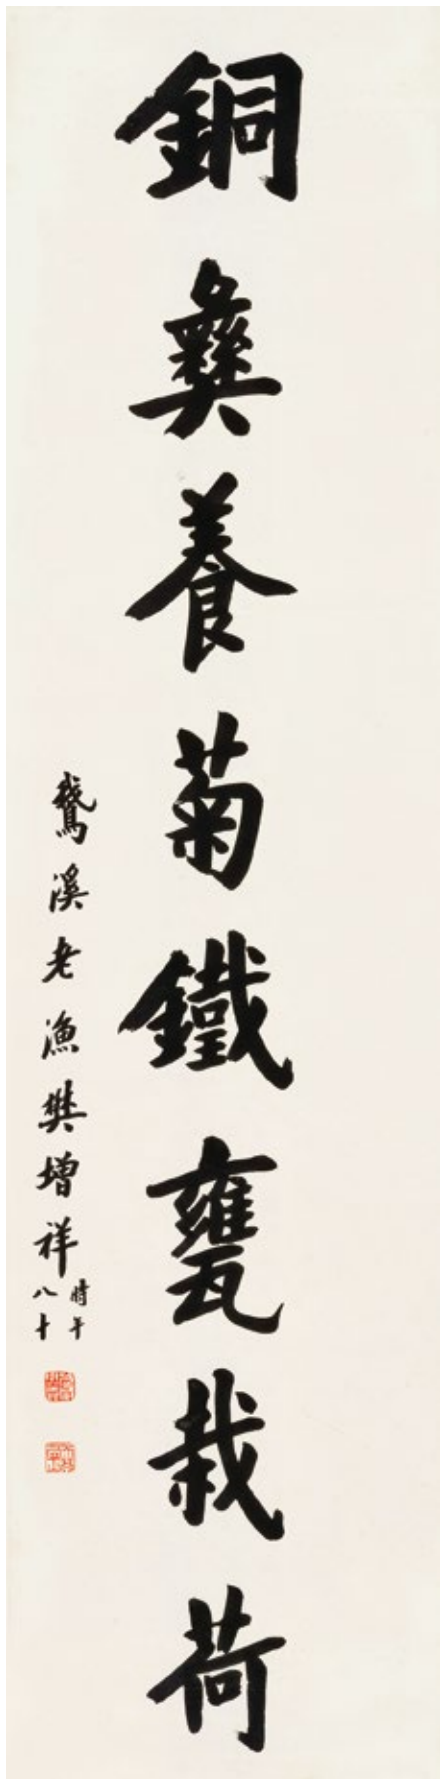 銅彝養菊鐵甕栽荷
鵞溪老漁樊增祥
時年
八十